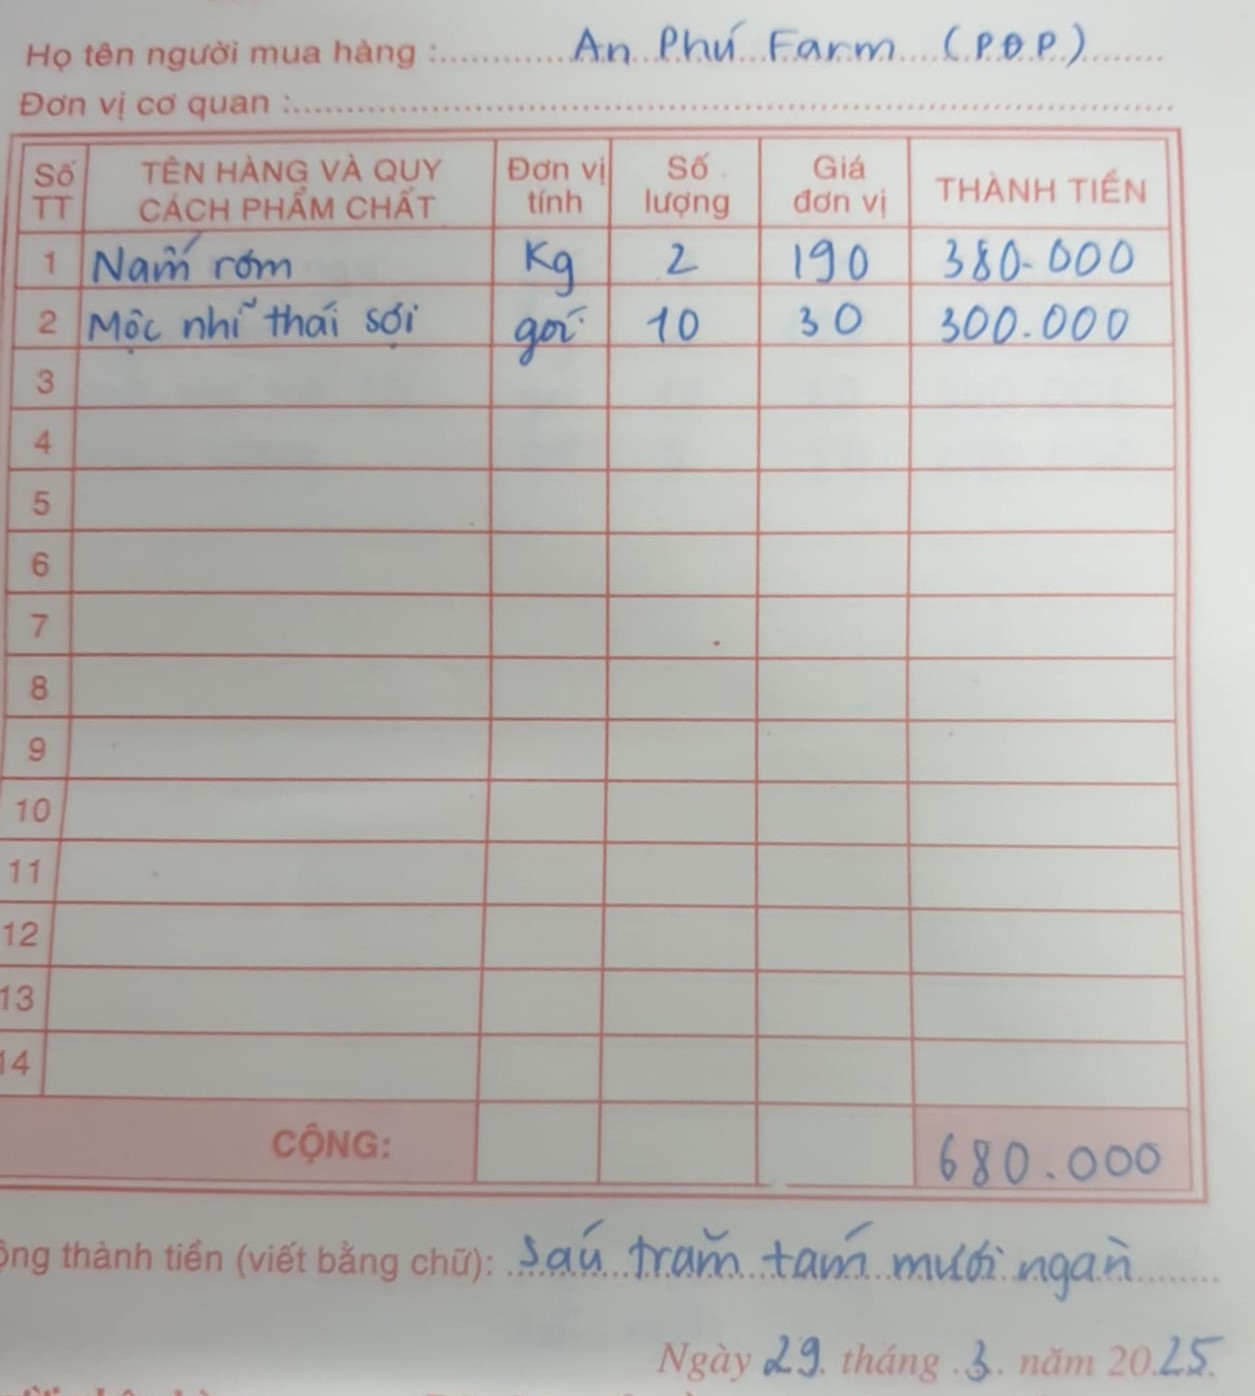 Họ tên người mua hàng : An Phú Farm (P.Đ.P.)
Đơn vị cơ quan :
Số TT TÊN HÀNG VÀ QUY CÁCH PHẨM CHẤT Đơn vị tính Số lượng Giá đơn vị THÀNH TIỀN
1 Nấm rơm Kg 2 190 380.000
2 Mộc nhĩ thái sợi gói 10 30 300.000
3
4
5
6
7
8
9
10
11
12
13
14
CỘNG: 680.000
ộng thành tiền (viết bằng chữ): Sáu trăm tám mươi ngàn
Ngày 29 tháng 3 năm 2025